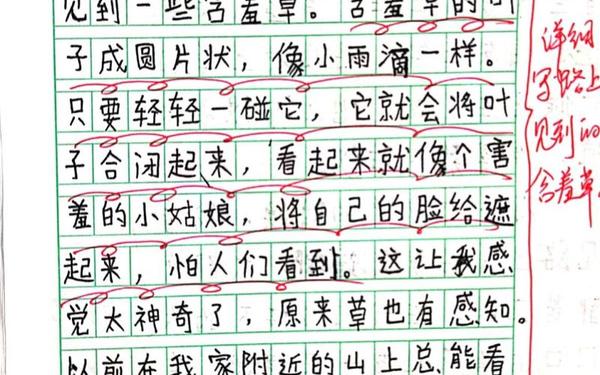 见到一些含羞草。含羞草的叶
子成圆片状，像小雨滴一样。
只要轻轻一碰它，它就会将叶
子合闭起来，看起来就像个害
羞的小姑娘，将自己的脸给遮
起来，怕人们看到。这让我感
觉太神奇了，原来草也有感知。
以前在我家附近的山上总能看
详细
写路上
见到的
含羞草。